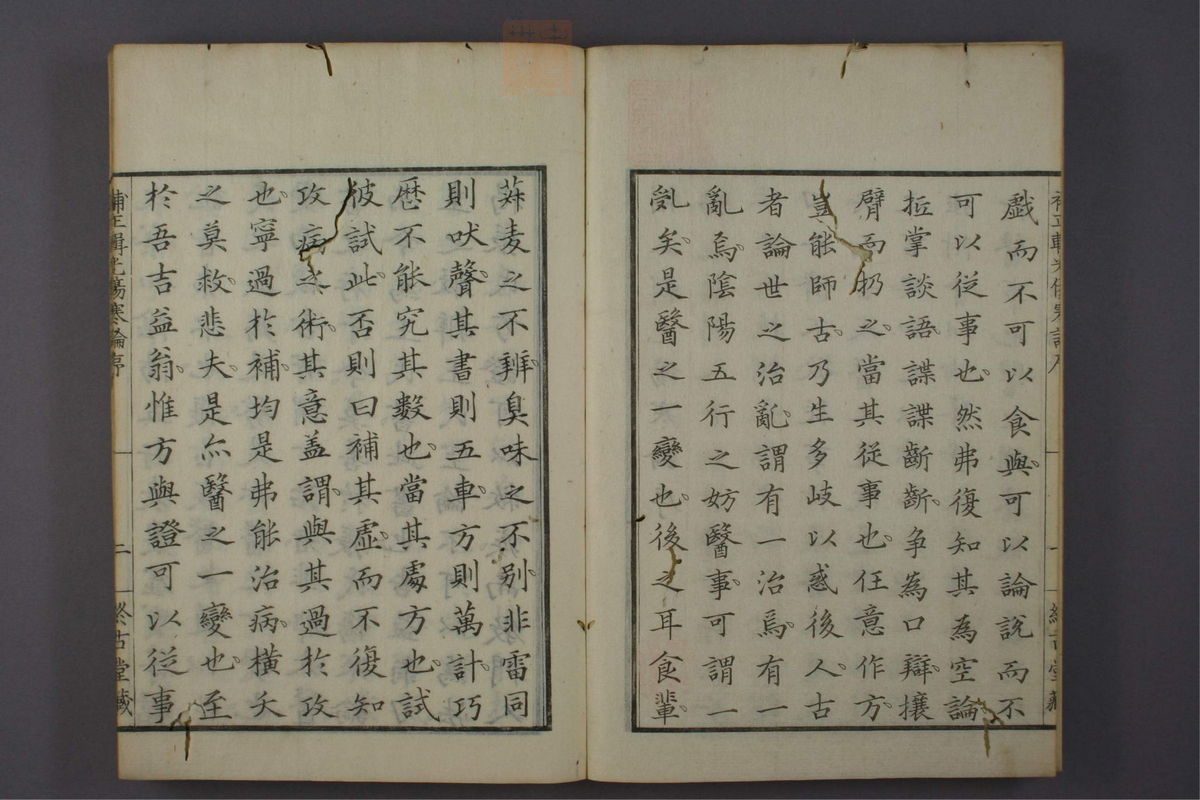 戲而不可以食與可以論說而不
可以從事也然弗復知其為空論
抵掌談語諜諜斷斷爭為口辯攘
臂而扔之當其從事也任意作方
豈能師古乃生多岐以惑後人古
者論世之治亂謂有一治焉有一
亂焉陰陽五行之妨醫事可謂一
亂矣是醫之一變也後之耳食輩
菽麦之不辨臭味之不别非雷同
則吠聲其書則五車方則萬計巧
歷不能究其數也當其處方也試
彼試此否則曰補其虛而不復知
攻病之術其意盖謂與其過於攻
也寧過於補均是弗能治病橫夭
之莫救悲夫是亦醫之一變也至
於吾吉益翁惟方與證可以從事
補正輯光傷寒論序
二
終古堂藏